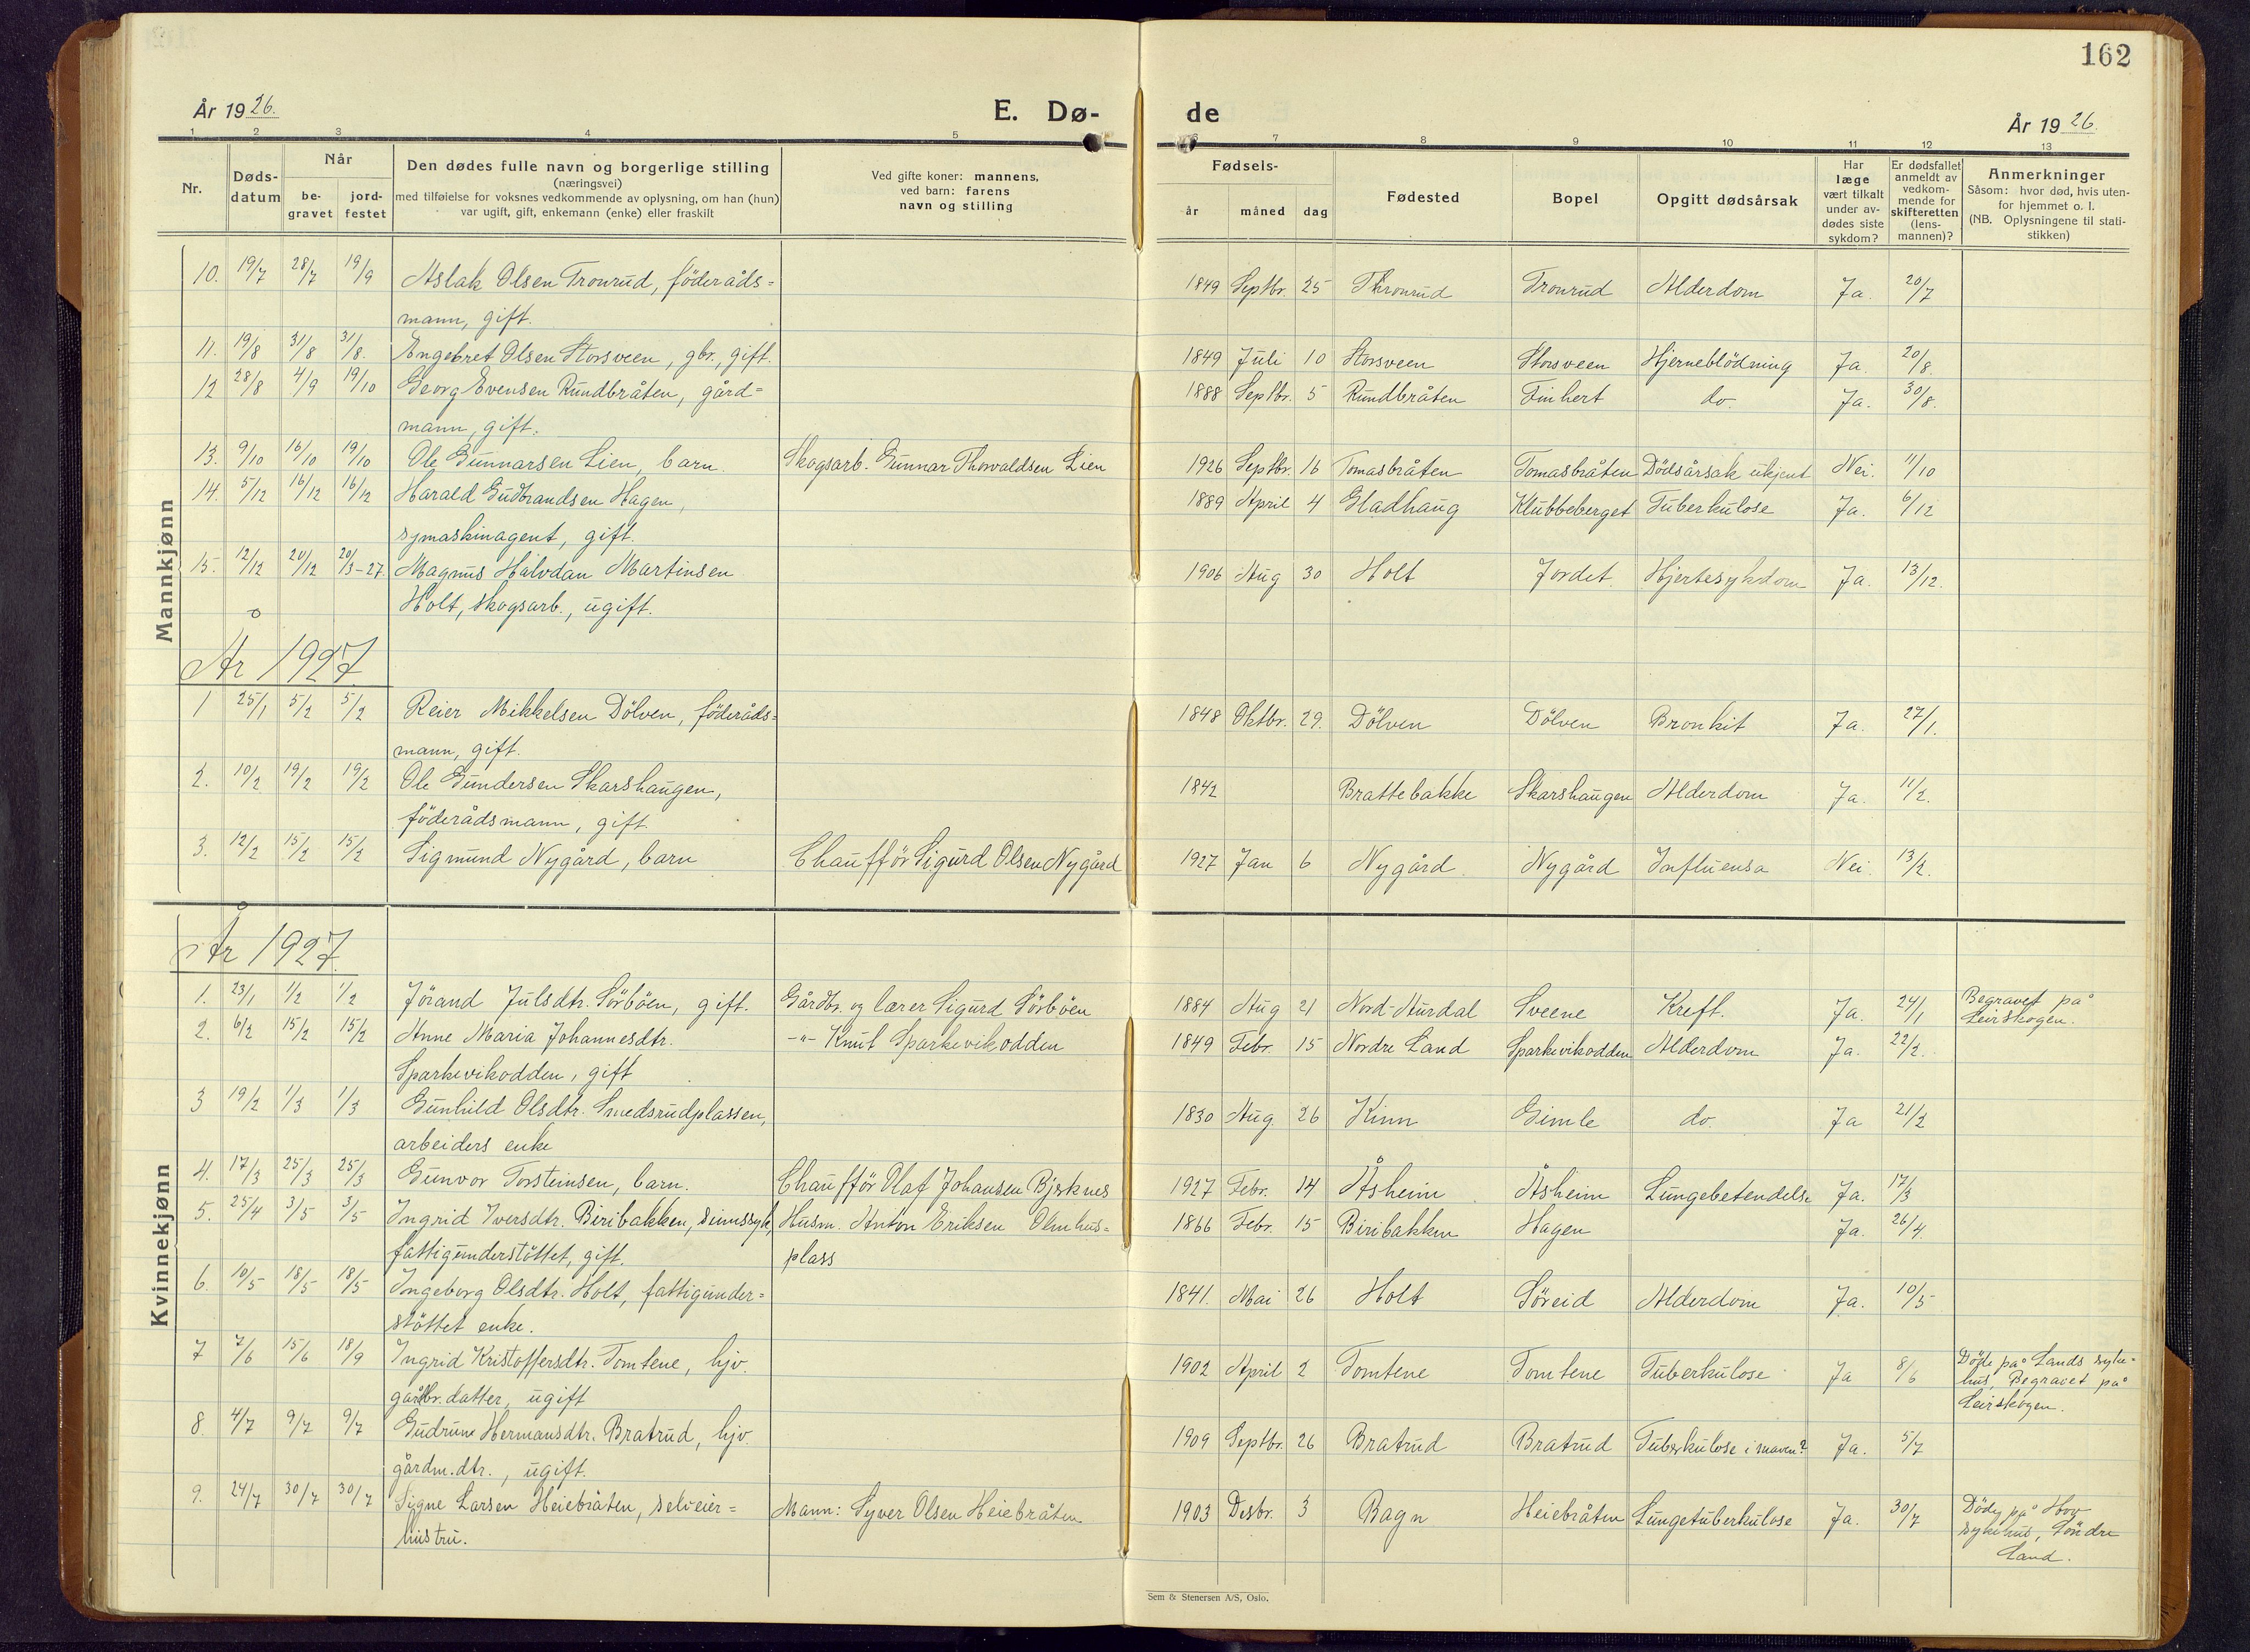 162
År 1926.
E. Dø-
de
År 1926.
1 2 3 4 5 6 7 8 9 10 11 12 13
Nr.
Døds-
datum
Når
be-
gravet
jord-
festet
Den dødes fulle navn og borgerlige stilling
(næringsvei)
med tilføielse for voksnes vedkommende av oplysning, om han (hun)
var ugift, gift, enkemann (enke) eller fraskilt
Ved gifte koner: mannens,
ved barn: farens
navn og stilling
Fødsels-
år måned dag
Fødested
Bopel
Opgitt dødsårsak
Har
læge
vært tilkalt
under av-
dødes siste
sykdom?
Er dødsfallet
anmeldt av
vedkom-
mende for
skifteretten
(lens-
mannen)?
Anmerkninger
Såsom: hvor død, hvis uten-
for hjemmet o. l.
(NB. Oplysningene til stati-
stikken)
Mannkjønn
10. 19/7 28/7 19/9 Aslak Olsen Tronrud, föderåds= 1849 Septbr. 25 Thronrud Tronrud Alderdom Ja. 20/7
mann, gift.
11. 19/8 31/8 31/8. Engebret Olsen Storsveen, gbr., gift. 1849 Juli 10 Storsveen Storsveen Hjerneblödning Ja. 20/8.
12 28/8 4/9 19/10 Georg Evensen Rundbråten, gård= 1888 Septbr. 5 Rundbråten Finhert do. Ja. 30/8.
mann, gift.
13. 9/10 16/10 19/10 Ole Gunnarsen Lien, barn. Skogsarb. Gunnar Thorvaldsen Lien 1926 Septbr. 16 Tomasbråten Tomasbråten Dödsårsak ukjent Nei. 11/10
14. 5/12 16/12 16/12 Harald Gudbrandsen Hagen, 1889 April 4 Gladhaug Klubbeberget Tuberkulose Ja. 6/12
symaskinagent, gift.
15. 12/12 20/12 20/3-27. Magnus Halvdan Martinsen 1906 Aug 30 Holt Jordet. Hjertesykdom Ja. 13/12.
Holt, skogsarb., ugift.
År 1927
1 25/1 5/2 5/2 Reier Mikkelsen Dölven, föderåds= 1848 Oktbr. 29. Dölven Dölven Bronkit Ja. 27/1.
mann, gift.
2. 10/2 19/2 19/2 Ole Gundersen Skarshaugen, 1842 Brattebakke Skarshaugen Alderdom Ja. 11/2.
föderådsmann, gift
3. 12/2 15/2 15/2 Sigmund Nygård, barn Chaufför Sigurd Olsen Nygård 1927 Jan 6 Nygård. Nygård Influensa Nei. 13/2.
Kvinnekjønn
År 1927.
1. 23/1 1/2 1/2 Jörand Julsdtr. Sörböen, gift. Gårdbr. og lærer Sigurd Sörböen 1884 Aug 21 Nord-Aurdal Sveene Kreft. Ja. 24/1 Begravet på
Leirskogen.
2. 6/2 15/2 15/2 Anne Maria Johannesdtr. -"- Knut Sparkevikodden 1849 Febr. 15 Nordre Land Sparkevikodden Alderdom Ja. 22/2.
Sparkevikodden, gift
3 19/2 1/3 1/3 Gunhild Olsdtr. Smedsrudplassen, 1830 Aug. 26 Kinn Gimle do. Ja 21/2
arbeiders enke
4. 17/3 25/3 25/3 Gunvor Torsteinsen, barn. Chaufför Olaf Johansen Bjerknes 1927 Febr. 14 Åsheim Åsheim Lungebetendelse Ja. 17/3
5. 25/4 3/5 3/5 Ingrid Iversdtr. Biribakken, sinnssyk, Husm. Anton Eriksen Olmhus= 1866 Febr. 15 Biribakken Hagen Ja. 26/4.
fattigunderstöttet, gift. plass
6. 10/5 18/5 18/5 Ingeborg Olsdtr. Holt, fattigunder= 1841. Mai 26 Holt Söreid Alderdom Ja. 10/5
stöttet enke.
7 7/6 15/6 18/9 Ingrid Kristoffersdtr. Tomtene, hjv. 1902 April 2 Tomtene Tomtene Tuberkulose Ja 8/6 Döde på Lands syke-
hus, Begravet på
Leirskogen.
gårdbr. datter, ugift
8. 4/7 9/7 9/7 Gudrune Hermansdtr. Bratrud, hjv. 1909 Septbr. 26 Bratrud Bratrud Tuberkulose i maven? Ja. 5/7
gårdm. dtr., ugift.
9. 24/7 30/7 30/7 Signe Larsen Heiebråten, selveier= Mann: Syver Olsen Heiebråten 1903 Desbr. 3 Bagn Heiebråten Lungetuberkulose Ja. 30/7 Döde på Hov
sykehus, Söndre
Land.
hustru.
Sem & Stenersen A/S, Oslo.